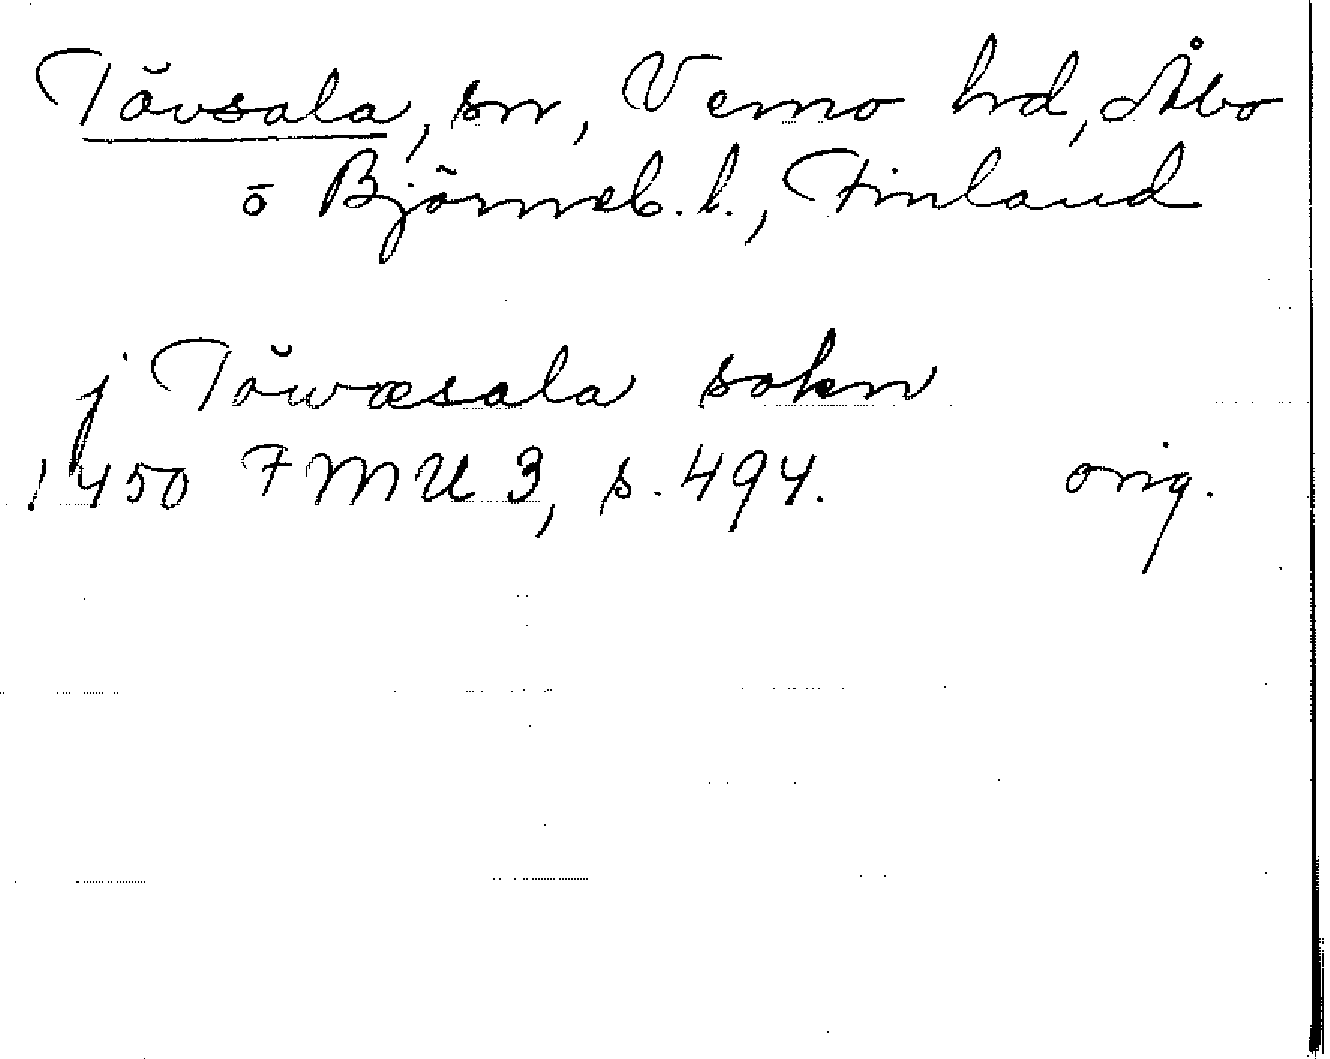 Tövsala, sn, Vemo hd, Åbo
o Björneb. l., Finland
j Töwæsala sokn
1450 FMU 3, s. 494. orig.